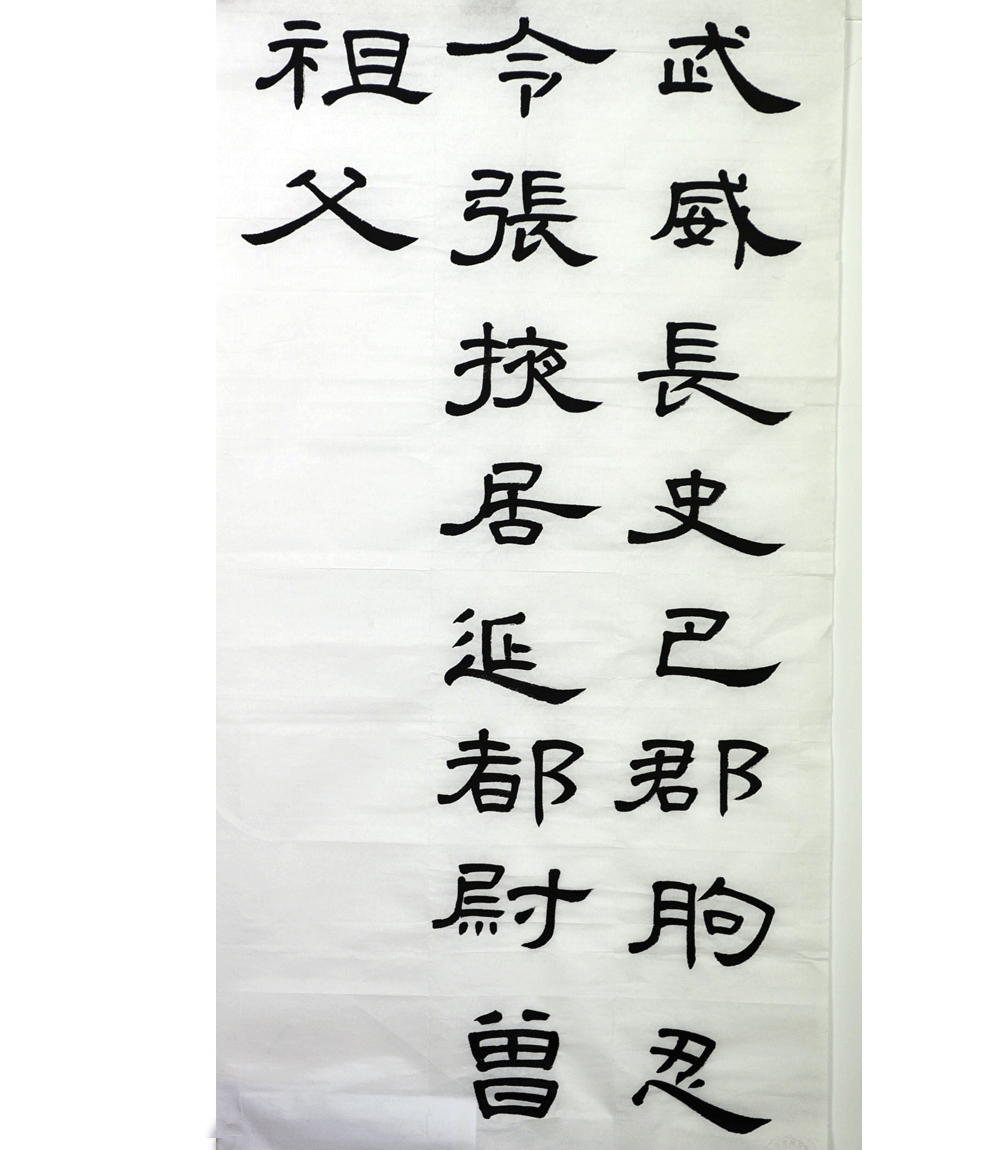 武威長史巴郡朐忍
令張掖居延都尉曾
祖父